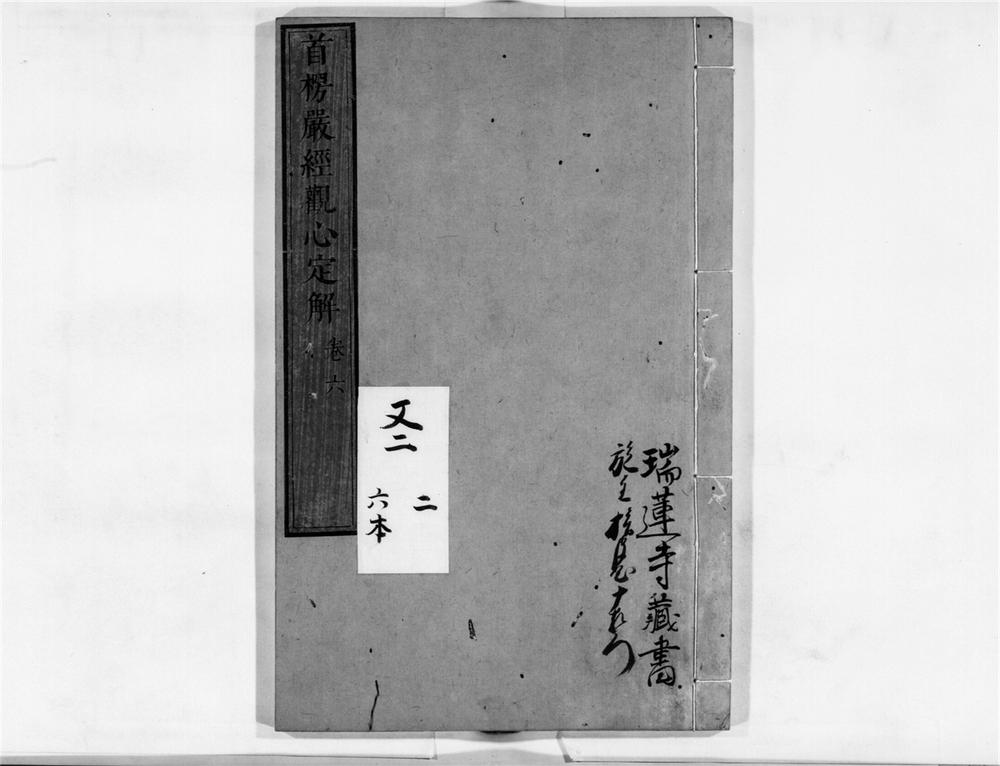 瑞蓮寺藏書
施主
首楞嚴經觀心定解 卷六
又二
二
六本